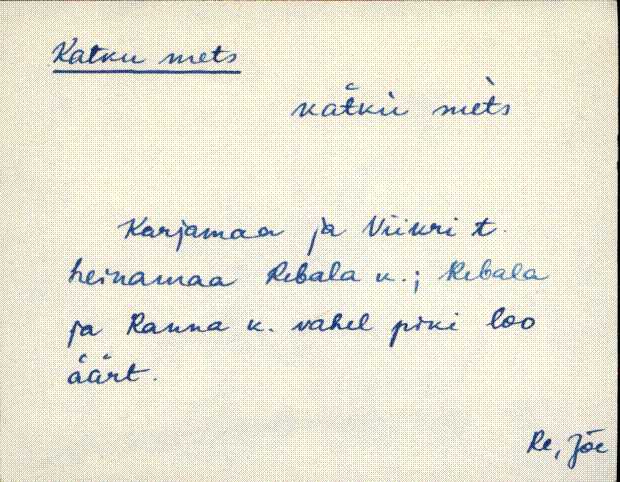 Katku mets
kat̆kù mèts
Karjamaa ja Viikri t.
heinamaa Rebala k.; Rebala
ja Ranna k. vahel piki loo
äärt.
Re, Jõe